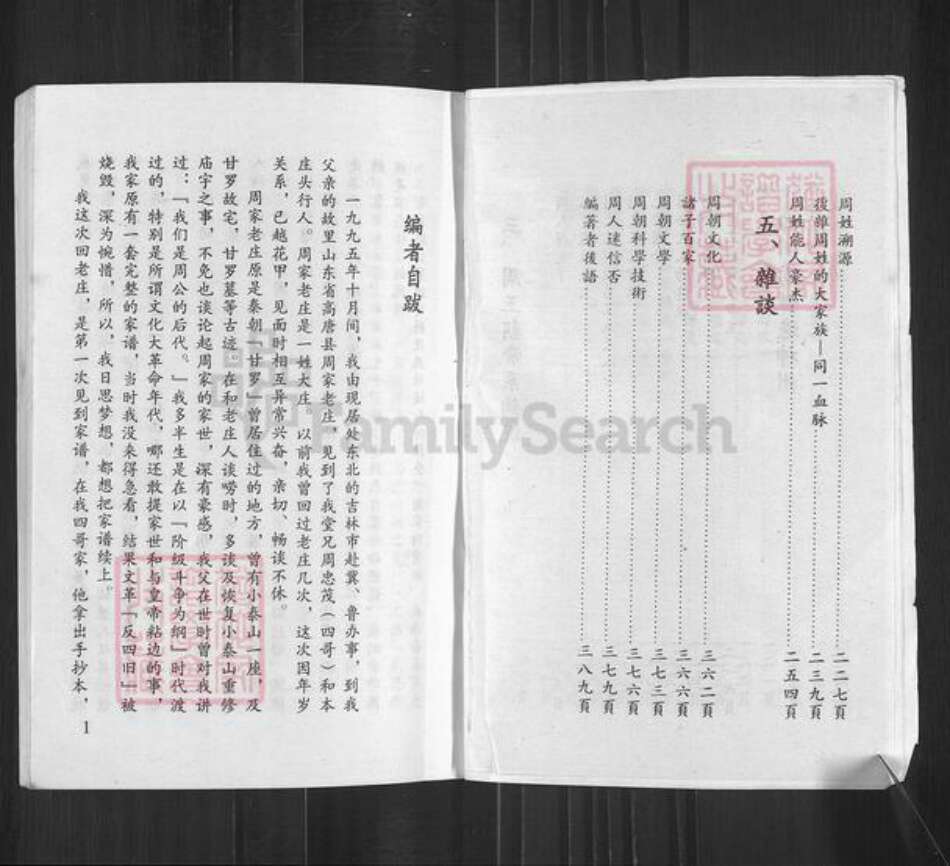 周姓溯源……二二七頁
後雜周姓的大家族—同一血脉……二三九頁
周姓能人豪杰……二五四頁
五、雜談
周朝文化……三六二頁
諸子百家……三六六頁
周朝文學……三七三頁
周朝科學技術……三七六頁
周人迷信否……三七九頁
編著者後語……三八九頁
编者自跋
一九九五年十月间，我由现居处东北的吉林市赴冀、鲁办事，到我
父亲的故里山东省高唐县周家老庄，见到了我堂兄周忠茂（四哥）和本
庄头行人。周家老庄是一姓大庄，以前我曾回过老庄几次，这次因年岁
关系，已越花甲，见面时相互异常兴奋，亲切、畅谈不休。
周家老庄原是秦朝「甘罗」曾居住过的地方，曾有小泰山一座，及
甘罗故宅，甘罗墓等古迹。在和老庄人谈唠时，多谈及恢复小泰山重修
庙宇之事，不免也谈论起周家的家世，深有豪感，我父在世时曾对我讲
过：「我们是周公的后代。」我多半生是在以「阶级斗争为纲」时代渡
过的，特别是所谓文化大革命年代，哪还敢提家世和与皇帝粘边的事，
我家原有一套完整的家谱，当时我没来得急看，结果文革「反四旧」被
烧毁，深为惋惜，所以，我日思梦想，都想把家谱续上。
我这次回老庄，是第一次见到家谱，在我四哥家，他拿出手抄本，
1
FamilySearch